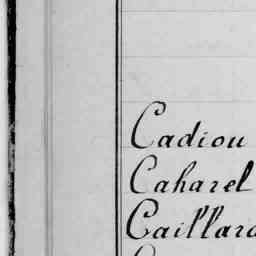 Cadiou
Caharel
Caillard